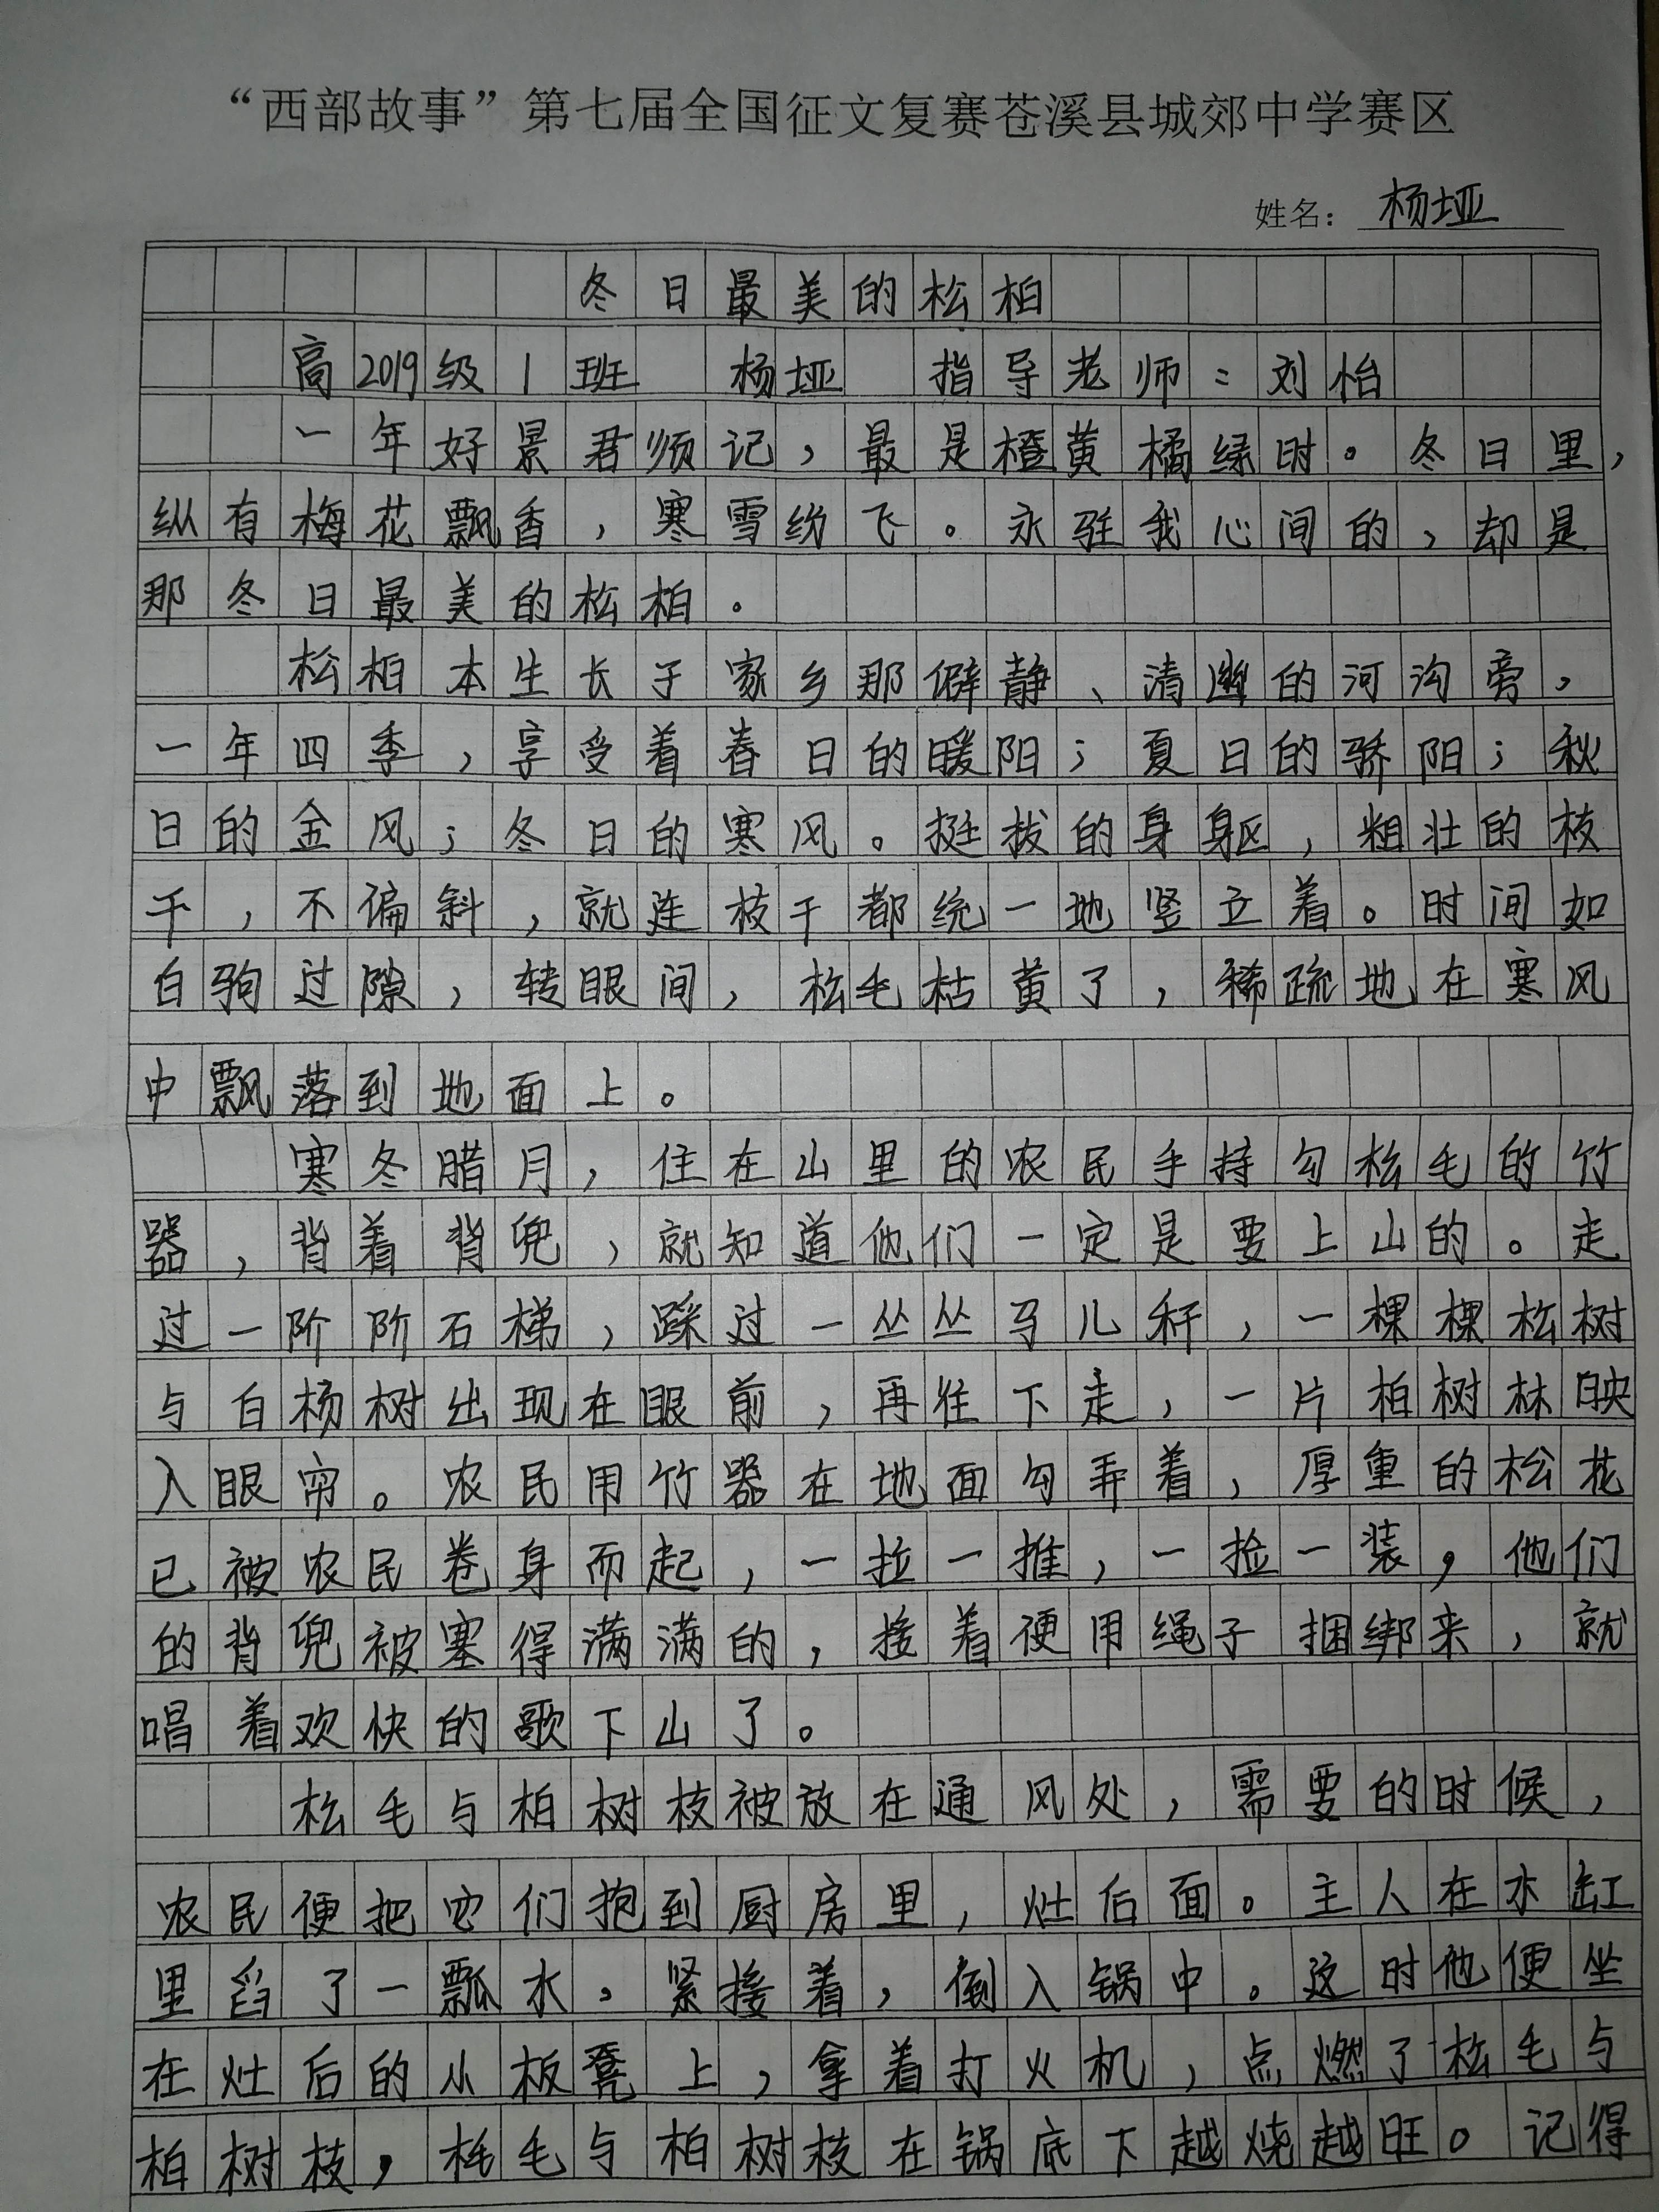 “西部故事”第七届全国征文复赛苍溪县城郊中学赛区
姓名：杨垭
冬日最美的松柏
高2019级1班 杨垭 指导老师：刘怡
一年好景君须记，最是橙黄橘绿时。冬日里，
纵有梅花飘香，寒雪纷飞。永驻我心间的，却是
那冬日最美的松柏。
松柏本生长于家乡那僻静、清幽的河沟旁，
一年四季，享受着春日的暖阳；夏日的骄阳；秋
日的金风；冬日的寒风。挺拔的身躯，粗壮的枝
干，不偏斜，就连枝干都统一地竖立着。时间如
白驹过隙，转眼间，松毛枯黄了，稀疏地在寒风
中飘落到地面上。
寒冬腊月，住在山里的农民手持勾松毛的竹
器，背着背兜，就知道他们一定是要上山的。走
过一阶阶石梯，踩过一丛丛马儿秆，一棵棵松树
与白杨树出现在眼前，再往下走，一片柏树林映
入眼帘。农民用竹器在地面勾弄着，厚重的松花
已被农民卷身而起，一拉一推，一捡一装，他们
的背兜被塞得满满的，接着便用绳子捆绑来，就
唱着欢快的歌下山了。
松毛与柏树枝被放在通风处，需要的时候，
农民便把它们抱到厨房里，灶后面。主人在水缸
里舀了一瓢水，紧接着，倒入锅中。这时他便坐
在灶后的小板凳上，拿着打火机，点燃了松毛与
柏树枝，松毛与柏树枝在锅底下越烧越旺。记得